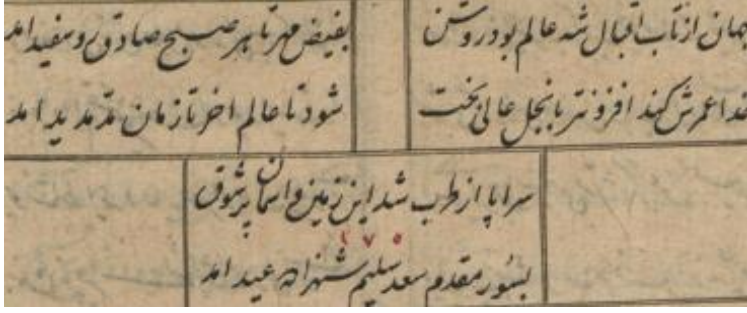 جهان از تاب اقبال شه عالم بود روشن
بفیض مهر تا هر صبح صادق رو سفید امد
خدا عمرش کند افزونتر با نجل عالی بخت
شود تا عالم اخر تا زمان مد مدید امد
سراپا از طرب شد این زمین و اسمان پر شوق
بسور مقدم سعد سلیم شهزاده عید امد